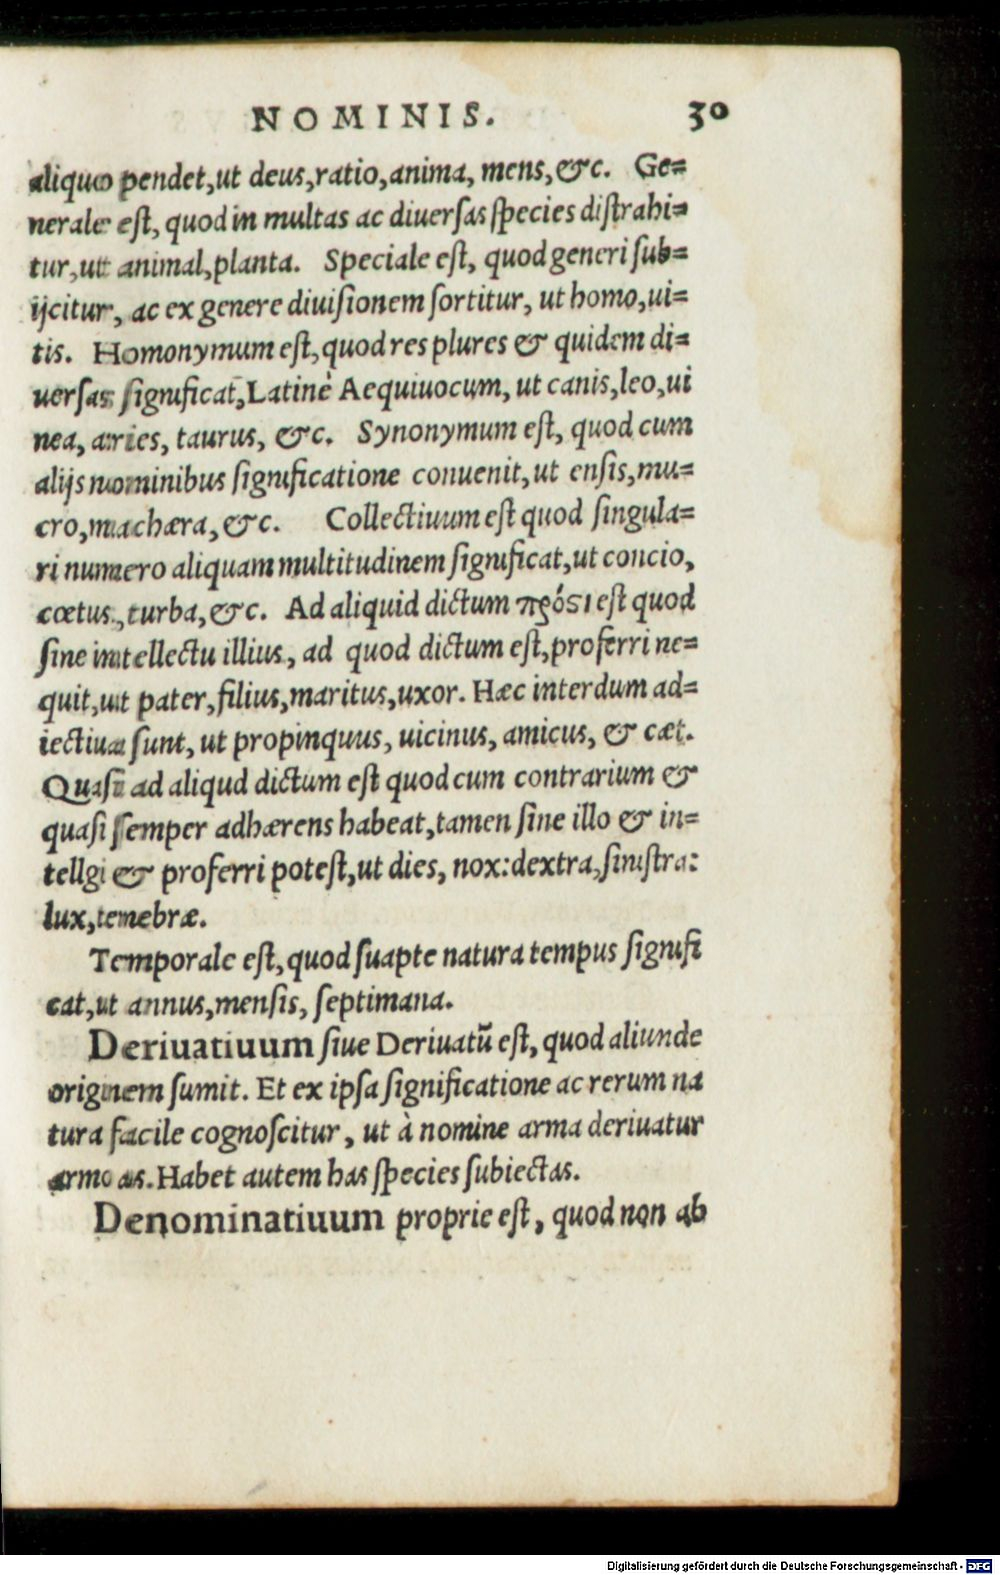 NOMINIS. 30
aliquo pendet,ut deus,ratio,anima, mens,&c. Ge=
nerale est, quod in multas ac diuersas species distrahi=
tur,ut animal,planta. Speciale est, quod generi sub=
ijcitur, ac ex genere diuisionem sortitur, ut homo,ui=
tis. Homonymum est,quod res plures & quidem di=
uersas significat,Latinè Aequiuocum, ut canis,leo,ui
nea, aries, taurus, &c. Synonymum est, quod cum
alijs nominibus significatione conuenit,ut ensis,mu=
cro,machæra,&c. Collectiuum est quod singula=
ri numero aliquam multitudinem significat,ut concio,
cœtus, turba,&c. Ad aliquid dictum πρόςι est quod
sine intellectu illius, ad quod dictum est,proferri ne=
quit,ut pater,filius,maritus,uxor. Hæc interdum ad=
iectiua sunt, ut propinquus, uicinus, amicus, & cæt.
Quasi ad aliqud dictum est quod cum contrarium &
quasi semper adhærens habeat,tamen sine illo & in=
tellgi & proferri potest,ut dies, nox:dextra,sinistra:
lux,tenebræ.
Temporale est,quod suapte natura tempus signifi
cat,ut annus,mensis, septimana.
Deriuatiuum siue Deriuatũ est, quod aliunde
originem sumit. Et ex ipsa significatione ac rerum na
tura facile cognoscitur, ut à nomine arma deriuatur
armo as.Habet autem has species subiectas.
Denominatiuum proprie est, quod non ab
Digitalisierung gefördert durch die Deutsche Forschungsgemeinschaft - DFG